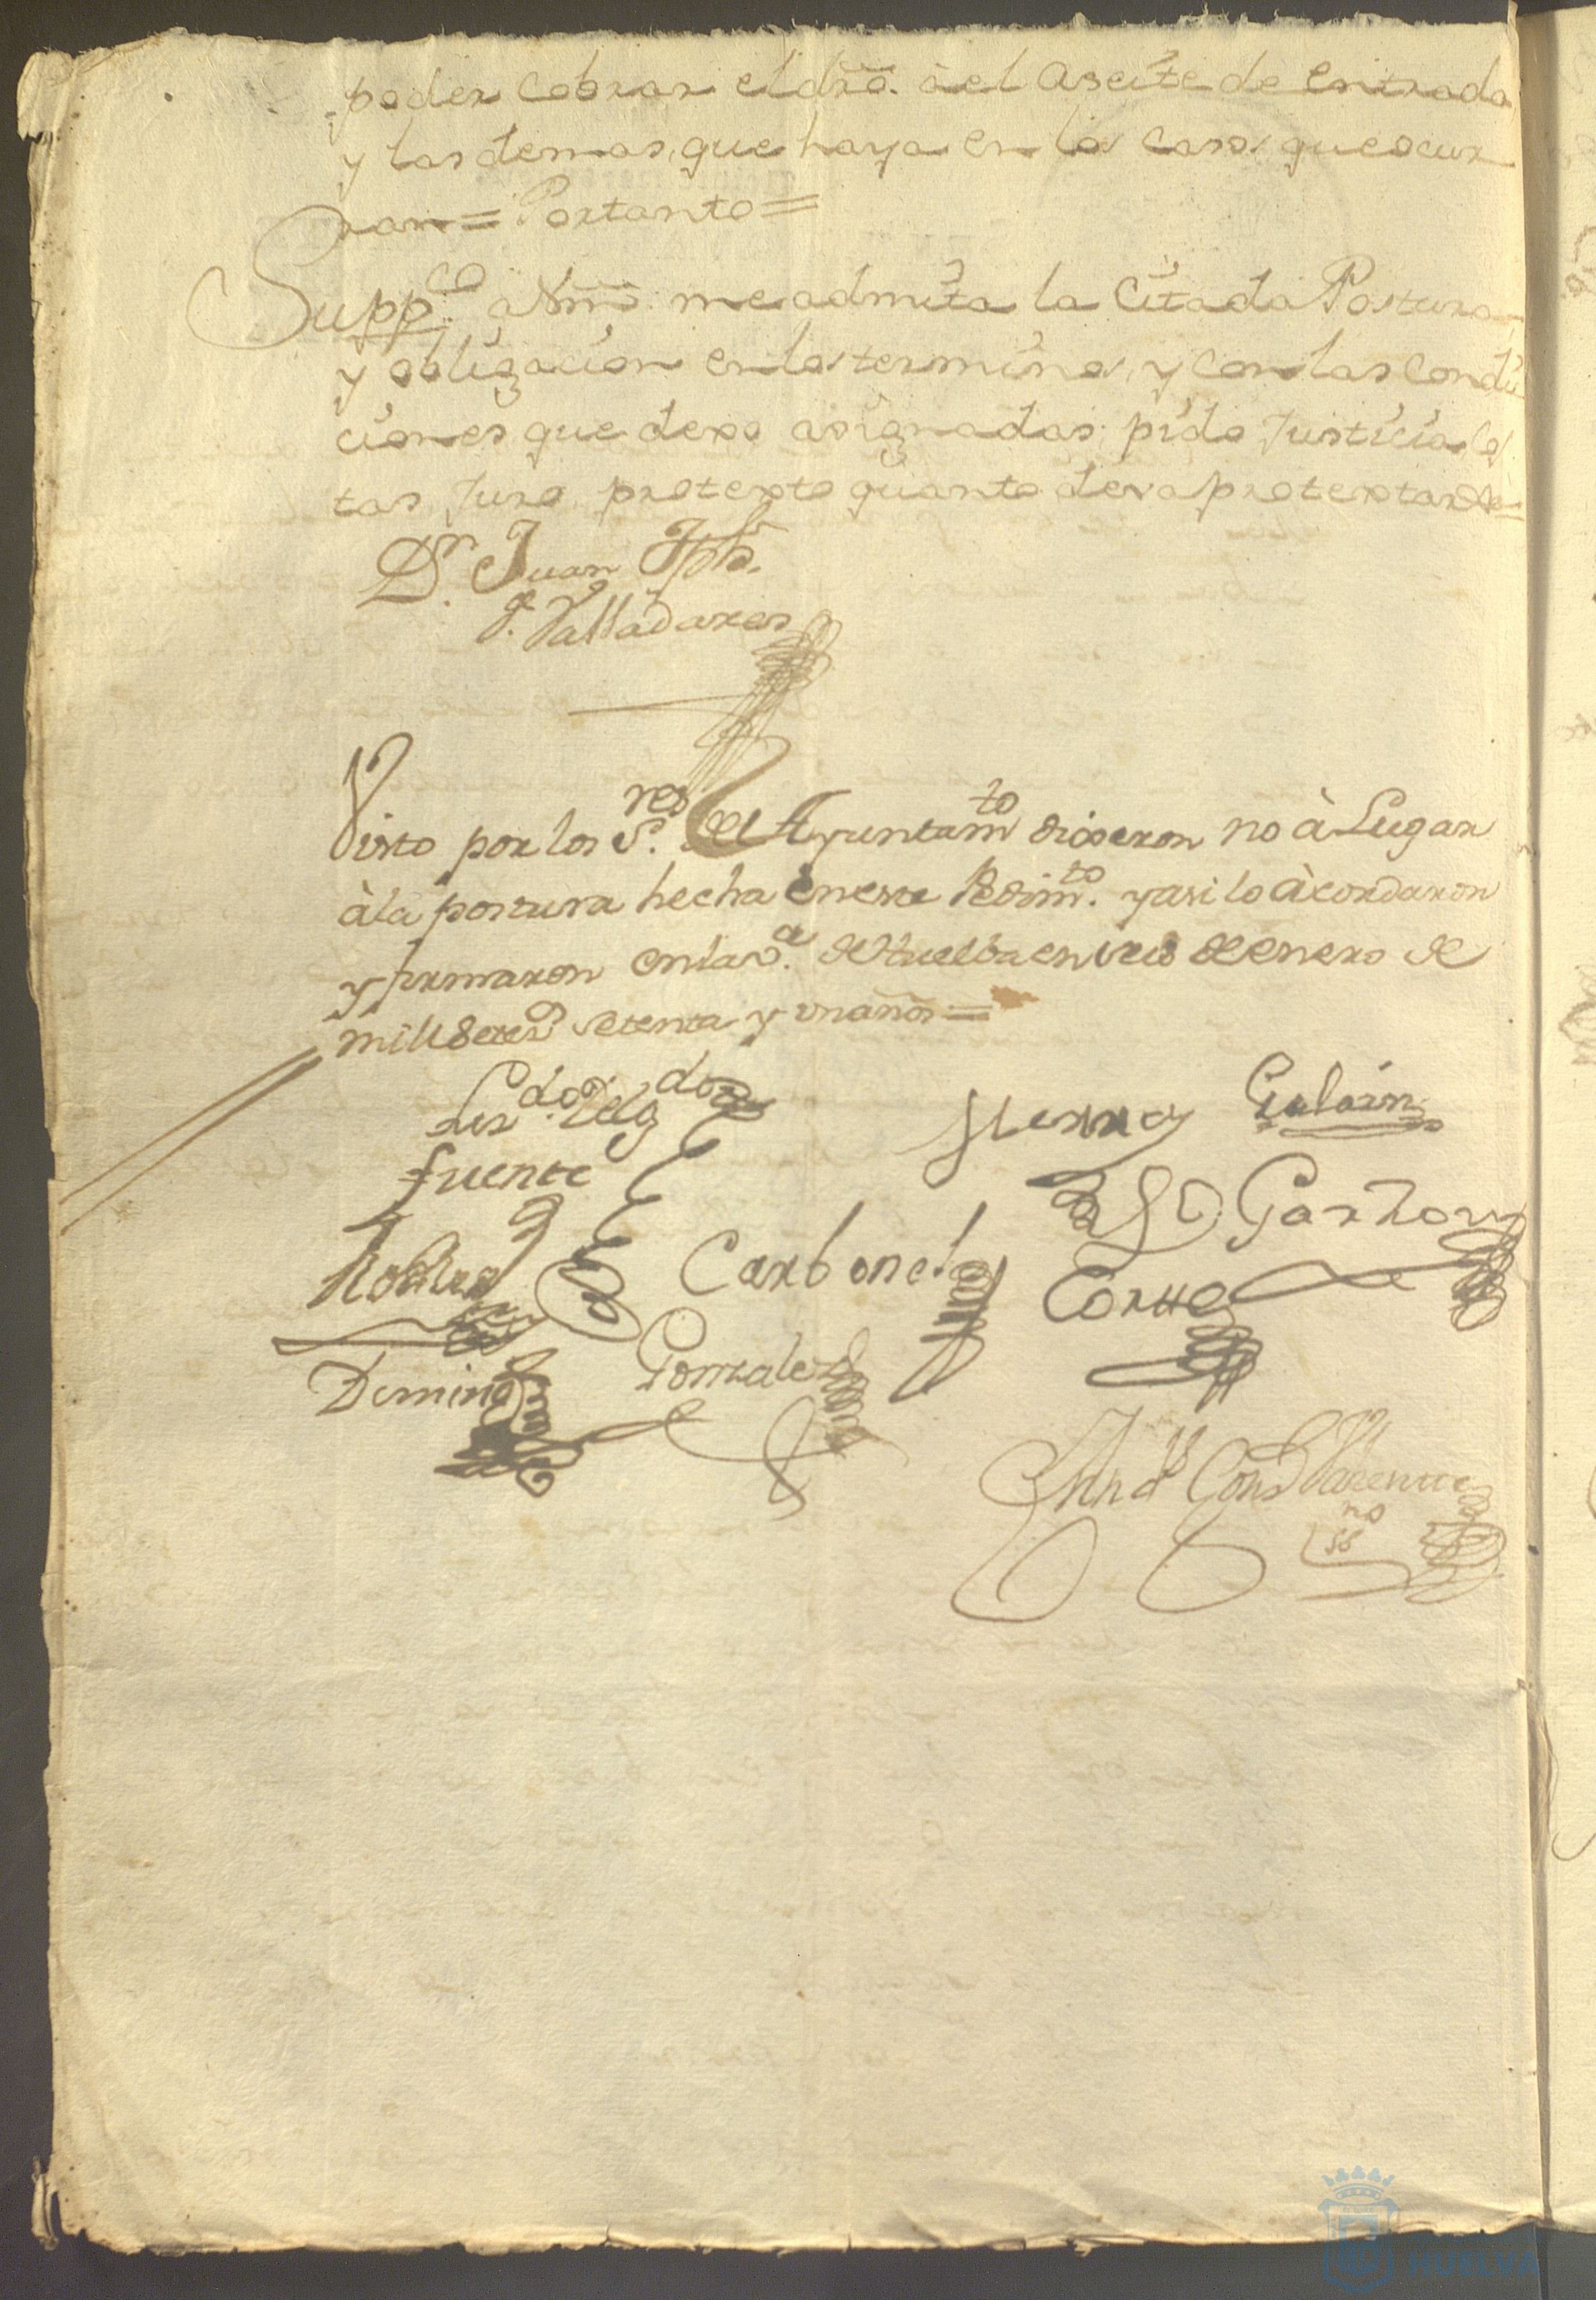 poder cobrar el dro. àel aseite de entrada
y las demas, que haya en la casa, que ocur
ran = Portanto =
Suppco. a Vm. me admita la Citada Postura
y obligacion en los terminos, y con las condi
ciones que dexo asignadas; pido Justicia, cos
tas, Juro, protexto quanto deva protextar
Dn. Juan Jph.
F. Valladares
Visto por los Sres. del Ayuntamto dixeron no à Lugar
àla postura hecha en este Pedimto. y asi lo àcordaron
y firmaron en la va. de Huelba en seis de enero de
mill setesos setenta y un años =
Lizdo. Delgdo
Fuente
Robles
Domingz
Carbonel
Gonzalez
Garzon
Andrs Consz Valiente
no
HUELVA